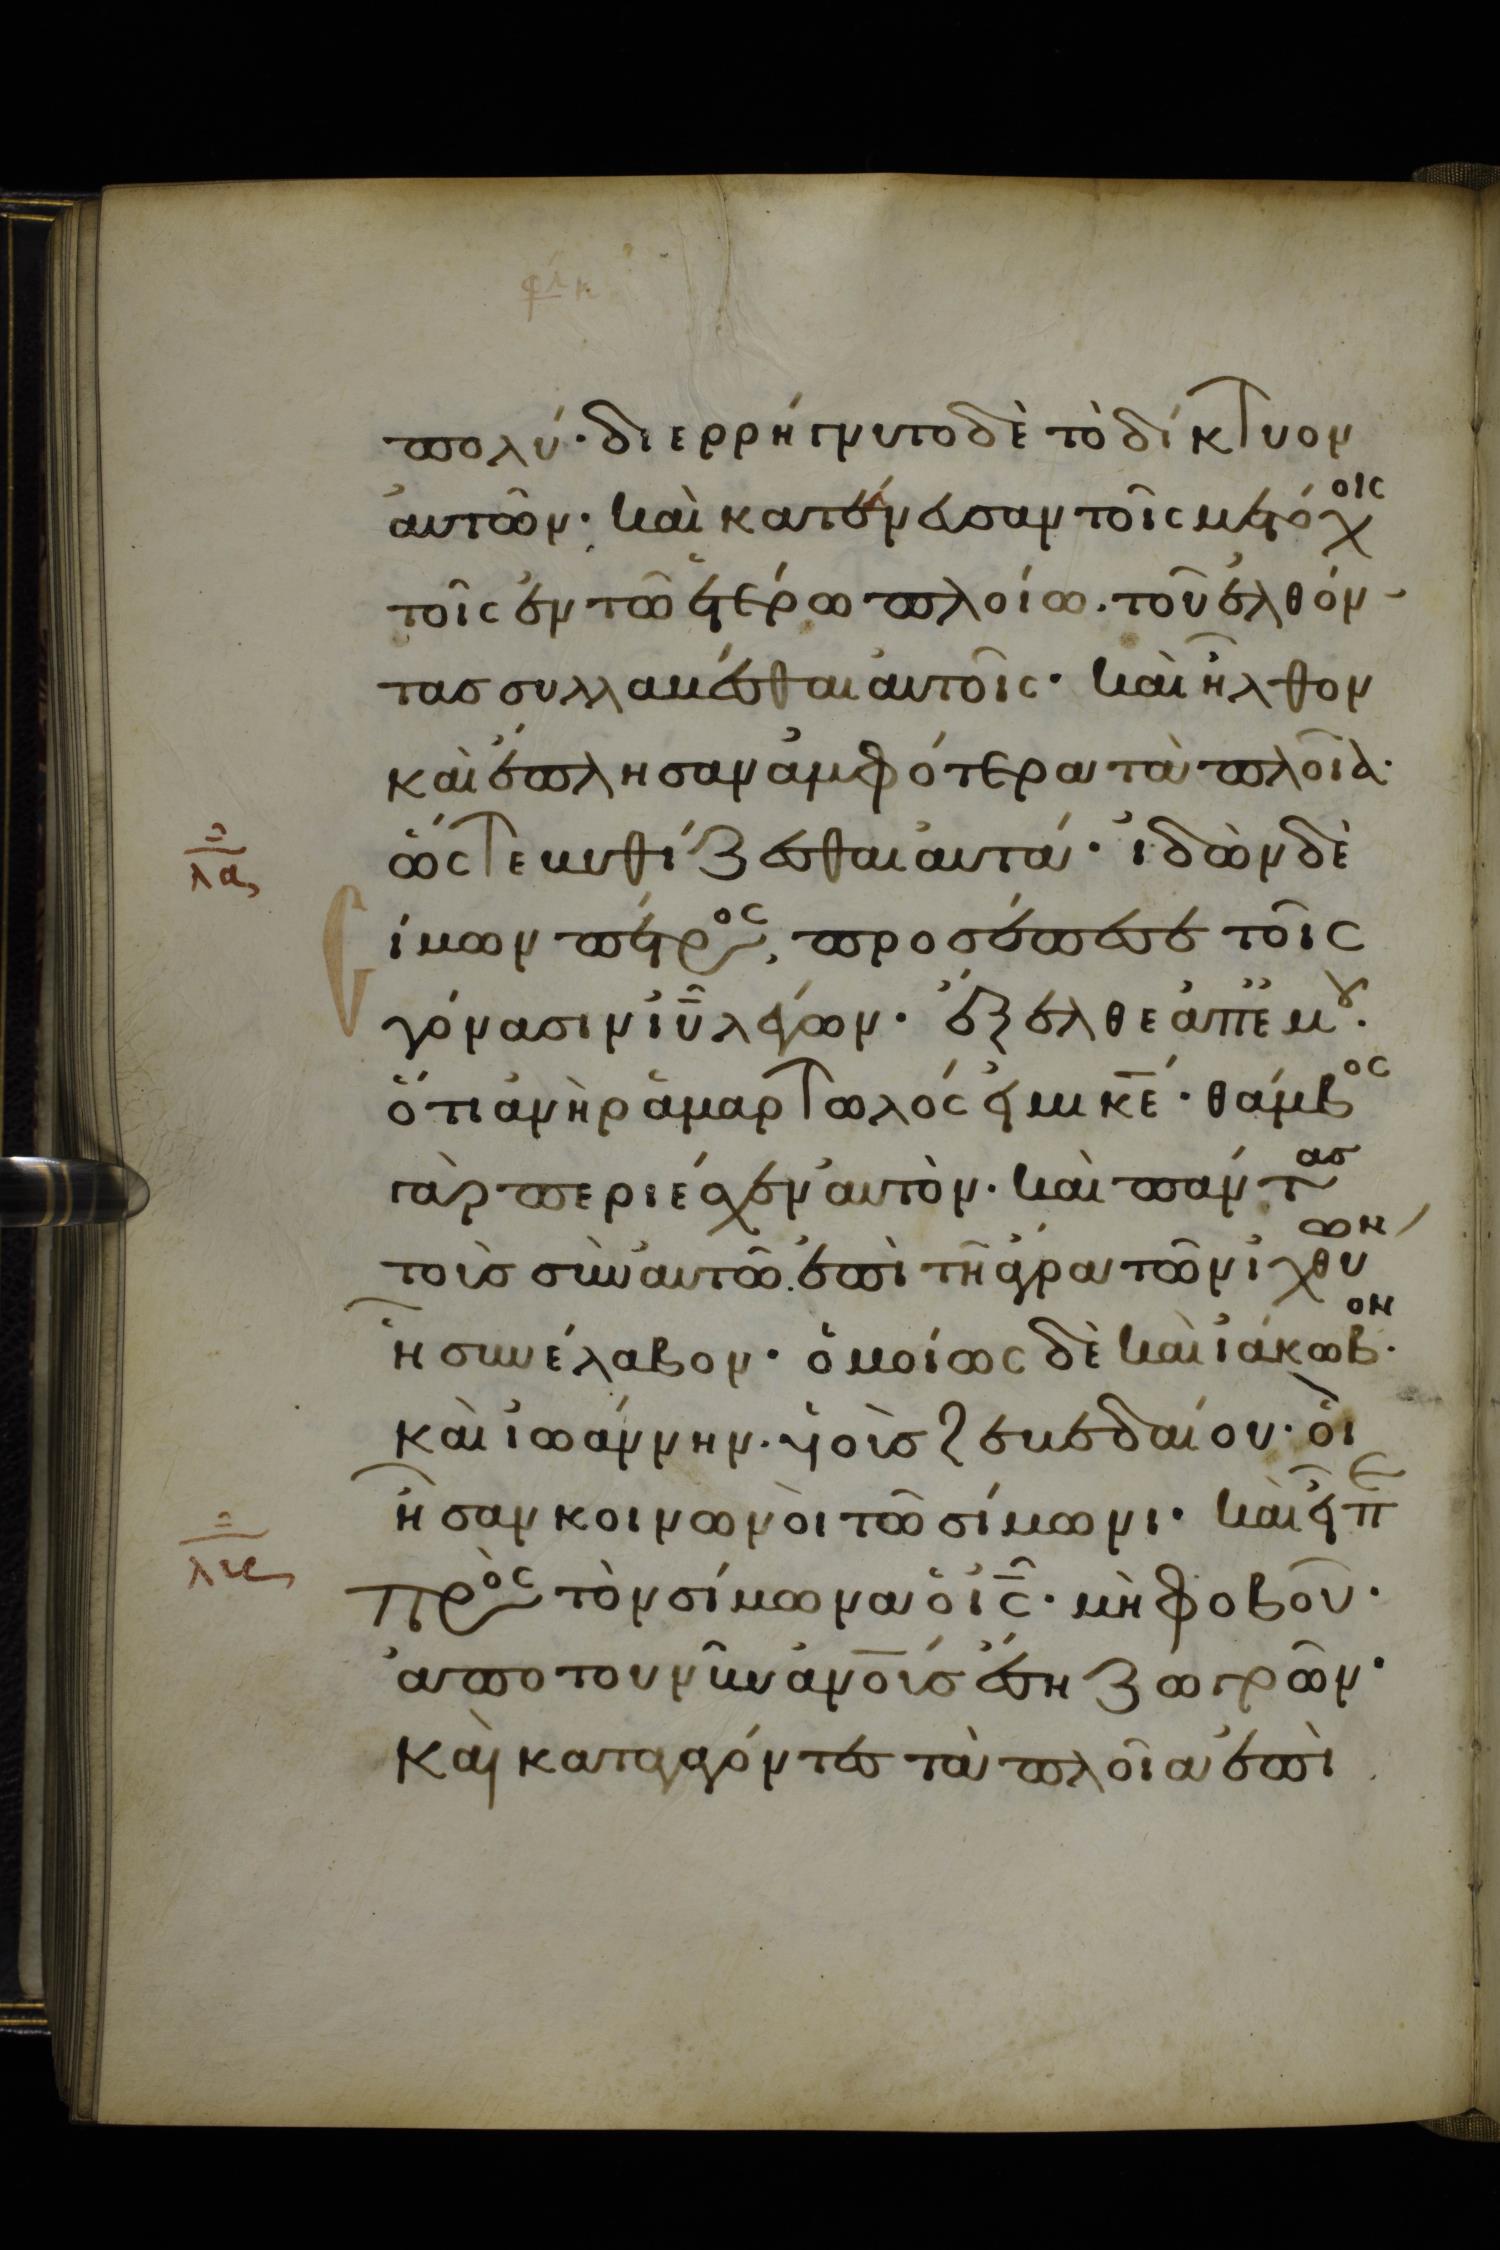 πολύ· διερρήγνυτο δὲ τὸ δίκτυον
ἀυτῶν· καὶ κατένευσαν τοῖς μετόχοις
τοῖς ἐν τῶ ἑτέρω πλοίω. τοῦ ἐλθόν
τας συλλαμβέσθαι ἀυτοῖς· καὶ ἦλθον
καὶ ἔπλησαν ἀμφότερα τὰ πλοῖα·
ὥςτε βυθίζεσθαι ἀυτά· ἰδὼν δὲ
λα
Σίμων πέτρος, προσέπεσε τοῖς
γόνασιν ἰῦ λέγων· ἔξελθε ἀπ' ἐμου·
ὅτι ἀνὴρ ἁμαρτωλός εἰμι κε̄· θάμβος
γὰρ περιέσχεν ἀυτὸν· καὶ πάντας
τοὺς σὺν ἀυτῶ. ἐπὶ τῆ ἄγρα τῶν ἰχθύων
ἧ συνέλαβον· ὁμοίως δὲ καὶ ἰάκωβον·
καὶ ἰωάννην. υἱοὺς ζεβεδαίου· οἳ
ἦσαν κοινωνοὶ τῶ σίμωνι· καὶ εἶπε
λβ
πρὸς τὸν σίμωνα ὁ ις̄· μὴ φοβοῦ·
ἀπο του νῦν ἀνοὺς ἔση ζωγρῶν·
Καὶ καταγαγόντες τὰ πλοῖα ἐπὶ